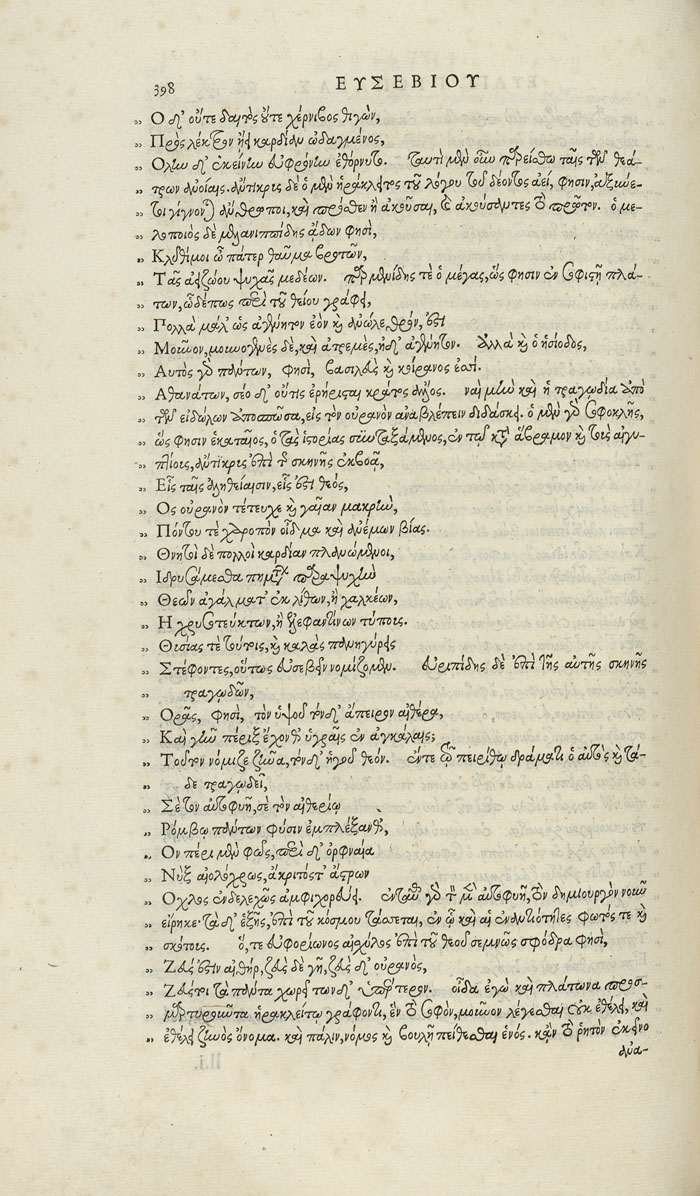 398 ΕΥΣΕΒΙΟΥ
„ Ο δ' οὔτε δαιτὸς οὔτε χέρνιβος θιγών,
„ Πρὸς λέκτρον ᾔει καρδίαν ὠδαγμένος,
„ Ολην δ' ἐκείνην εὐφρόνην ἐθόρνυτο. ταυτὶ μὲν οὖν παρείσθω ταῖς τῶν θεά-
„ τρων ἀνοίαις. ἄντικρις δὲ ὁ μὲν ἡράκλειτος τοῦ λόγου τοῦ δέοντος ἀεί, φησιν, ἀξιώε-
„ τοι γίγνονται ἄνθρωποι, καὶ πρόσθεν ἢ ἀκοῦσαι, καὶ ἀκούσαντες τὸ πρῶτον. ὁ με-
„ λοποιὸς δὲ μελανιππίδης ᾄδων φησὶ,
„ Κλῦθί μοι ὦ πάτερ θαῦμα βροτῶν,
„ Τᾶς ἀειζώου ψυχᾶς μεδέων. παρμενίδης τὲ ὁ μέγας, ὥς φησιν ἐν σοφιστῇ πλά-
„ των, ὧδέ πως περὶ τοῦ θείου γράφει,
„ Πολλὰ μάλ' ὡς ἀγένητον ἐὸν καὶ ἀνώλεθρόν, ἐστι
„ Μοῦνον, μουνογενὲς δὲ, καὶ ἀτρεμὲς, ἠδ' ἀγένητον. ἀλλὰ καὶ ὁ ἡσίοδος,
„ Αυτὸς γὰρ πάντων, φησὶ, βασιλεὺς καὶ κοίρανος ἐστί.
„ Αθανάτων, σέο δ' οὔτις ἐρήρισται κράτος ἄλλος. ναὶ μὴν καὶ ἡ τραγωδία ἀπὸ
„ τῶν εἰδώλων ἀποσπῶσα, εἰς τὸν οὐρανὸν ἀναβλέπειν διδάσκει. ὁ μὲν γὰρ σοφοκλῆς,
„ ὥς φησιν ἑκαταῖος, ὁ τὰς ἱστορίας συνταξάμενος, ἐν τῷ κατ' ἄβραμον καὶ τοὺς αἰγυ-
„ πτίους, ἄντικρις ἐπὶ τῆς σκηνῆς ἐκβοᾷ,
„ Εἷς ταῖς ἀληθείαισιν, εἷς ἐστι θεός,
„ Ος οὐρανὸν τέτευχε καὶ γαῖαν μακρὴν,
„ Πόντου τὲ χαροπὸν οἶδμα καὶ ἀνέμων βίας.
„ Θνητοὶ δὲ πολλοὶ καρδίαν πλανώμενοι,
„ Ιδρυσάμεσθα πημάτων παραψυχὴν
„ Θεῶν ἀγάλματ' ἐκ λίθων, ἢ χαλκέων,
„ Η χρυσοτεύκτων, ἢ ἐλεφαντίνων τύπους.
„ Θυσίας τὲ τούτοις, καὶ καλὰς πανηγύρεις
„ Στέφοντες, οὕτως εὐσεβεῖν νομίζομεν. εὐριπίδης δὲ ἐπὶ τῆς αὐτῆς σκηνῆς
„ τραγῳδῶν,
„ Ορᾷς, φησὶ, τὸν ὑψοῦ τόνδ' ἄπειρον αἰθέρα,
„ Καὶ γῆν πέριξ ἔχονθ' ὑγραῖς ἐν ἀγκαλαις;
„ Τοῦτον νόμιζε ζῆνα, τόνδ' ἡγοῦ θεόν. ἔν τε τῷ πειρίθῳ δράματι ὁ αὐτὸς καὶ τά-
„ δε τραγωδεῖ,
„ Σὲ τὸν αὐτοφυῆ, σὲ τὸν αἰθερίῳ
„ Ρόμβῳ πάντων φύσιν ἐμπλέξανθ',
„ Ον πέρι μὲν φῶς, περὶ δ' ὀρφναία
„ Νὺξ αἰολόχρως, ἄκριτός τ' ἄστρων
„ Οχλος ἐνδελεχῶς ἀμφιχορεύει. ἐνταῦθα γὰρ τὸν μὲν αὐτοφυῆ, τὸν δημιουργὸν νοῦν
„ εἴρηκε· τὰ δ' ἑξῆς, ἐπὶ τοῦ κόσμου τάσσεται, ἐν ᾧ καὶ αἱ ἐναντιότητες φωτός τε καὶ
„ σκότους. ὅ, τε εὐφορίωνος αἰσχύλος ἐπὶ τοῦ θεοῦ σεμνῶς σφόδρα φησὶ,
„ Ζεύς ἐστιν αἰθὴρ, ζεὺς δὲ γῆ, ζεὺς δ' οὐρανὸς,
„ Ζεύς τοι τὰ πάντα χωρεῖ τῶνδ' ὑπέρτερον. οἶδα ἐγὼ καὶ πλάτωνα προσ-
„ μαρτυροῦντα ἡρακλείτῳ γράφοντι, ἓν τὸ σοφὸν, μοῦνον λέγεσθαι οὐκ ἐθέλει, καὶ
„ ἐθέλει ζηνὸς ὄνομα. καὶ πάλιν, νόμος καὶ βουλῇ πείθεσθαι ἑνός. κἂν τὸ ῥητὸν ἐκεῖνο
ἀνα-